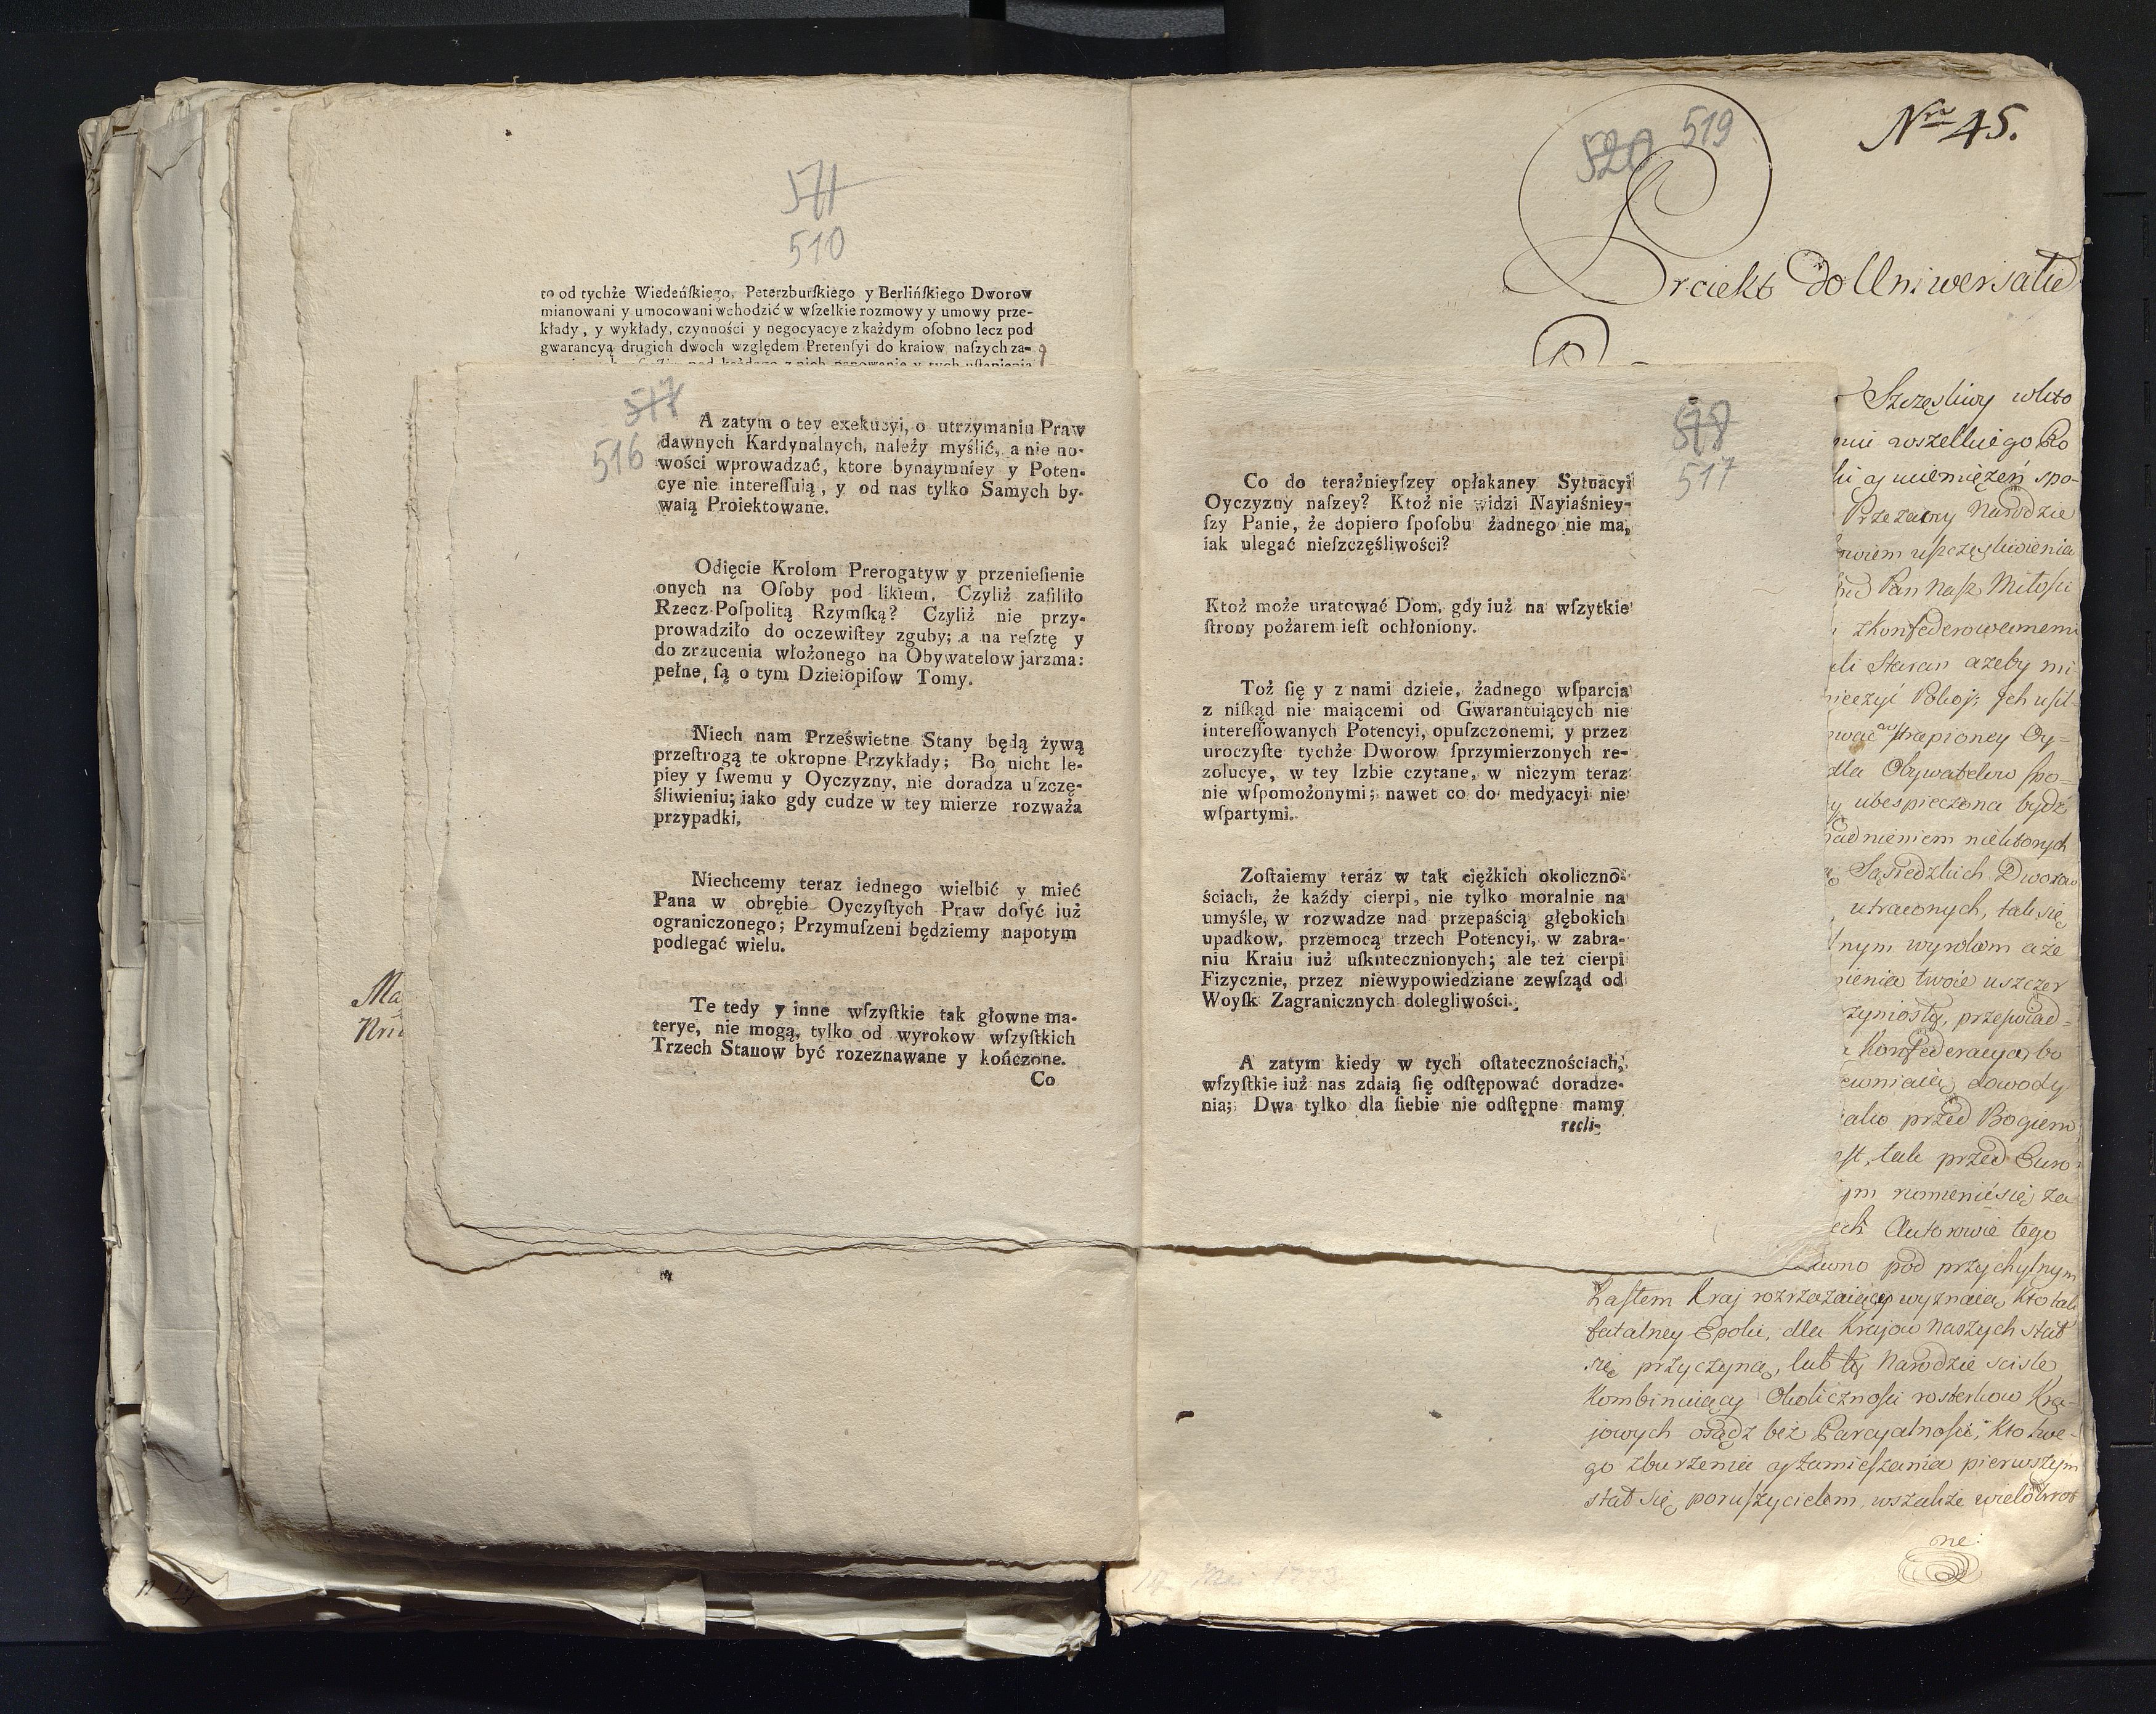 511
510
to od tychże Wiedeńſkiego, Peterzburſkiego y Berlińſkiego Dworow
mianowani y umocowani wchodzić w wſzelkie rozmowy y umowy prze-
kłady, y wykłady, czynności y negocyacye z każdym oſobno lecz pod
gwarancyą drugich dwoch względem Pretenſyi do kraiow naſzych za-
517
516
A zatym o tey exekucyi, o utrzymaniu Praw
dawnych Kardynalnych, należy myślić, a nie no-
wości wprowadzać, ktore bynaymniey y Poten-
cye nie intereſſuią, y od nas tylko Samych by-
waią Proiektowane.
Odięcie Krolom Prerogatyw y przenieſienie
onych na Oſoby pod likiem, Czyliż zaſiliło
Rzecz-Poſpolitą Rzymſką? Czyliż nie przy-
prowadziło do oczewiſtey zguby; a na reſztę y
do zrzucenia włożonego na Obywatelow jarzma:
pełne, ſą o tym Dzieiopiſow Tomy.
Niech nam Prześwietne Stany będą żywą
przeſtrogą te okropne Przykłady; Bo nicht le-
piey y ſwemu y Oyczyzny, nie doradza uſzczę-
śliwieniu; iako gdy cudze w tey mierze rozważa
przypadki,
Niechcemy teraz iednego wielbić y mieć
Pana w obrębie Oyczyſtych Praw doſyć iuż
ograniczonego; Przymuſzeni będziemy napotym
podlegać wielu.
Te tedy y inne wſzyſtkie tak głowne ma-
terye, nie mogą, tylko od wyrokow wſzyſtkich
Trzech Stanow być rozeznawane y kończone.
Co
Ma
518
517
Co do teraźnieyſzey opłakaney Sytuacyi
Oyczyzny naſzey? Ktoż nie widzi Nayiaśniey-
ſzy Panie, że dopiero ſpoſobu żadnego nie ma,
iak ulegać nieſzczęśliwości?
Ktoż może uratować Dom, gdy iuż na wſzytkie
ſtrony pożarem ieſt ochłoniony.
Toż ſię y z nami dzieie, żadnego wſparcia
z niſkąd nie maiącemi od Gwarantuiących nie
intereſſowanych Potencyi, opuſzczonemi, y przez
uroczyſte tychże Dworow ſprzymierzonych re-
zolucye, w tey Izbie czytane, w niczym teraz
nie wſpomożonymi; nawet co do medyacyi nie
wſpartymi.
Zoſtaiemy teraz w tak ciężkich okoliczno-
ściach, że każdy cierpi, nie tylko moralnie na
umyśle, w rozwadze nad przepaścią głębokich
upadkow, przemocą trzech Potencyi, w zabra-
niu Kraiu iuż uſkutecznionych; ale też cierpi
Fizycznie, przez niewypowiedziane zewſząd od
Woyſk Zagranicznych dolegliwości.
A zatym kiedy w tych oſtatecznościach,
wſzyſtkie iuż nas zdaią ſię odſtępować doradze-
nia; Dwa tylko dla ſiebie nie odſtępne mamy
recli-
520 519
Nro 45.
Proiekt do Uniwersału
Szczęśliwy
wszelkiego
uciemiężeń spo-
Narodzie
uszczęśliwienia
Pan Nasz Miłości
zkonfederowanemi
Staran ażeby
Ich usił-
strapioney Oy-
dla Obywatelow spo-
ubespieczona bydź
Sąsiedzkich Dworow
utraconych, tak się
wyrokom aże
twoie uszczer
przeswiad-
Konfederacya, bo
dowody
przed Bogiem
tak przed Euro
rumienić się za
Autorowie tego
pod przychylnym
Hastem Kraj rozrzazaiący wyznaią, Kto tak
fatalney Epoki, dla Krajow Naszych stał
się przyczyną, lub ty Narodzie scisle
Kombinuiący Okoliczności rosterkow Kra-
jowych osądz beż Parcyalności, Kto twe-
go zburzenia y zamieszania pierwszym
stał się poruszycielem, wszakże wielokrot
ne: